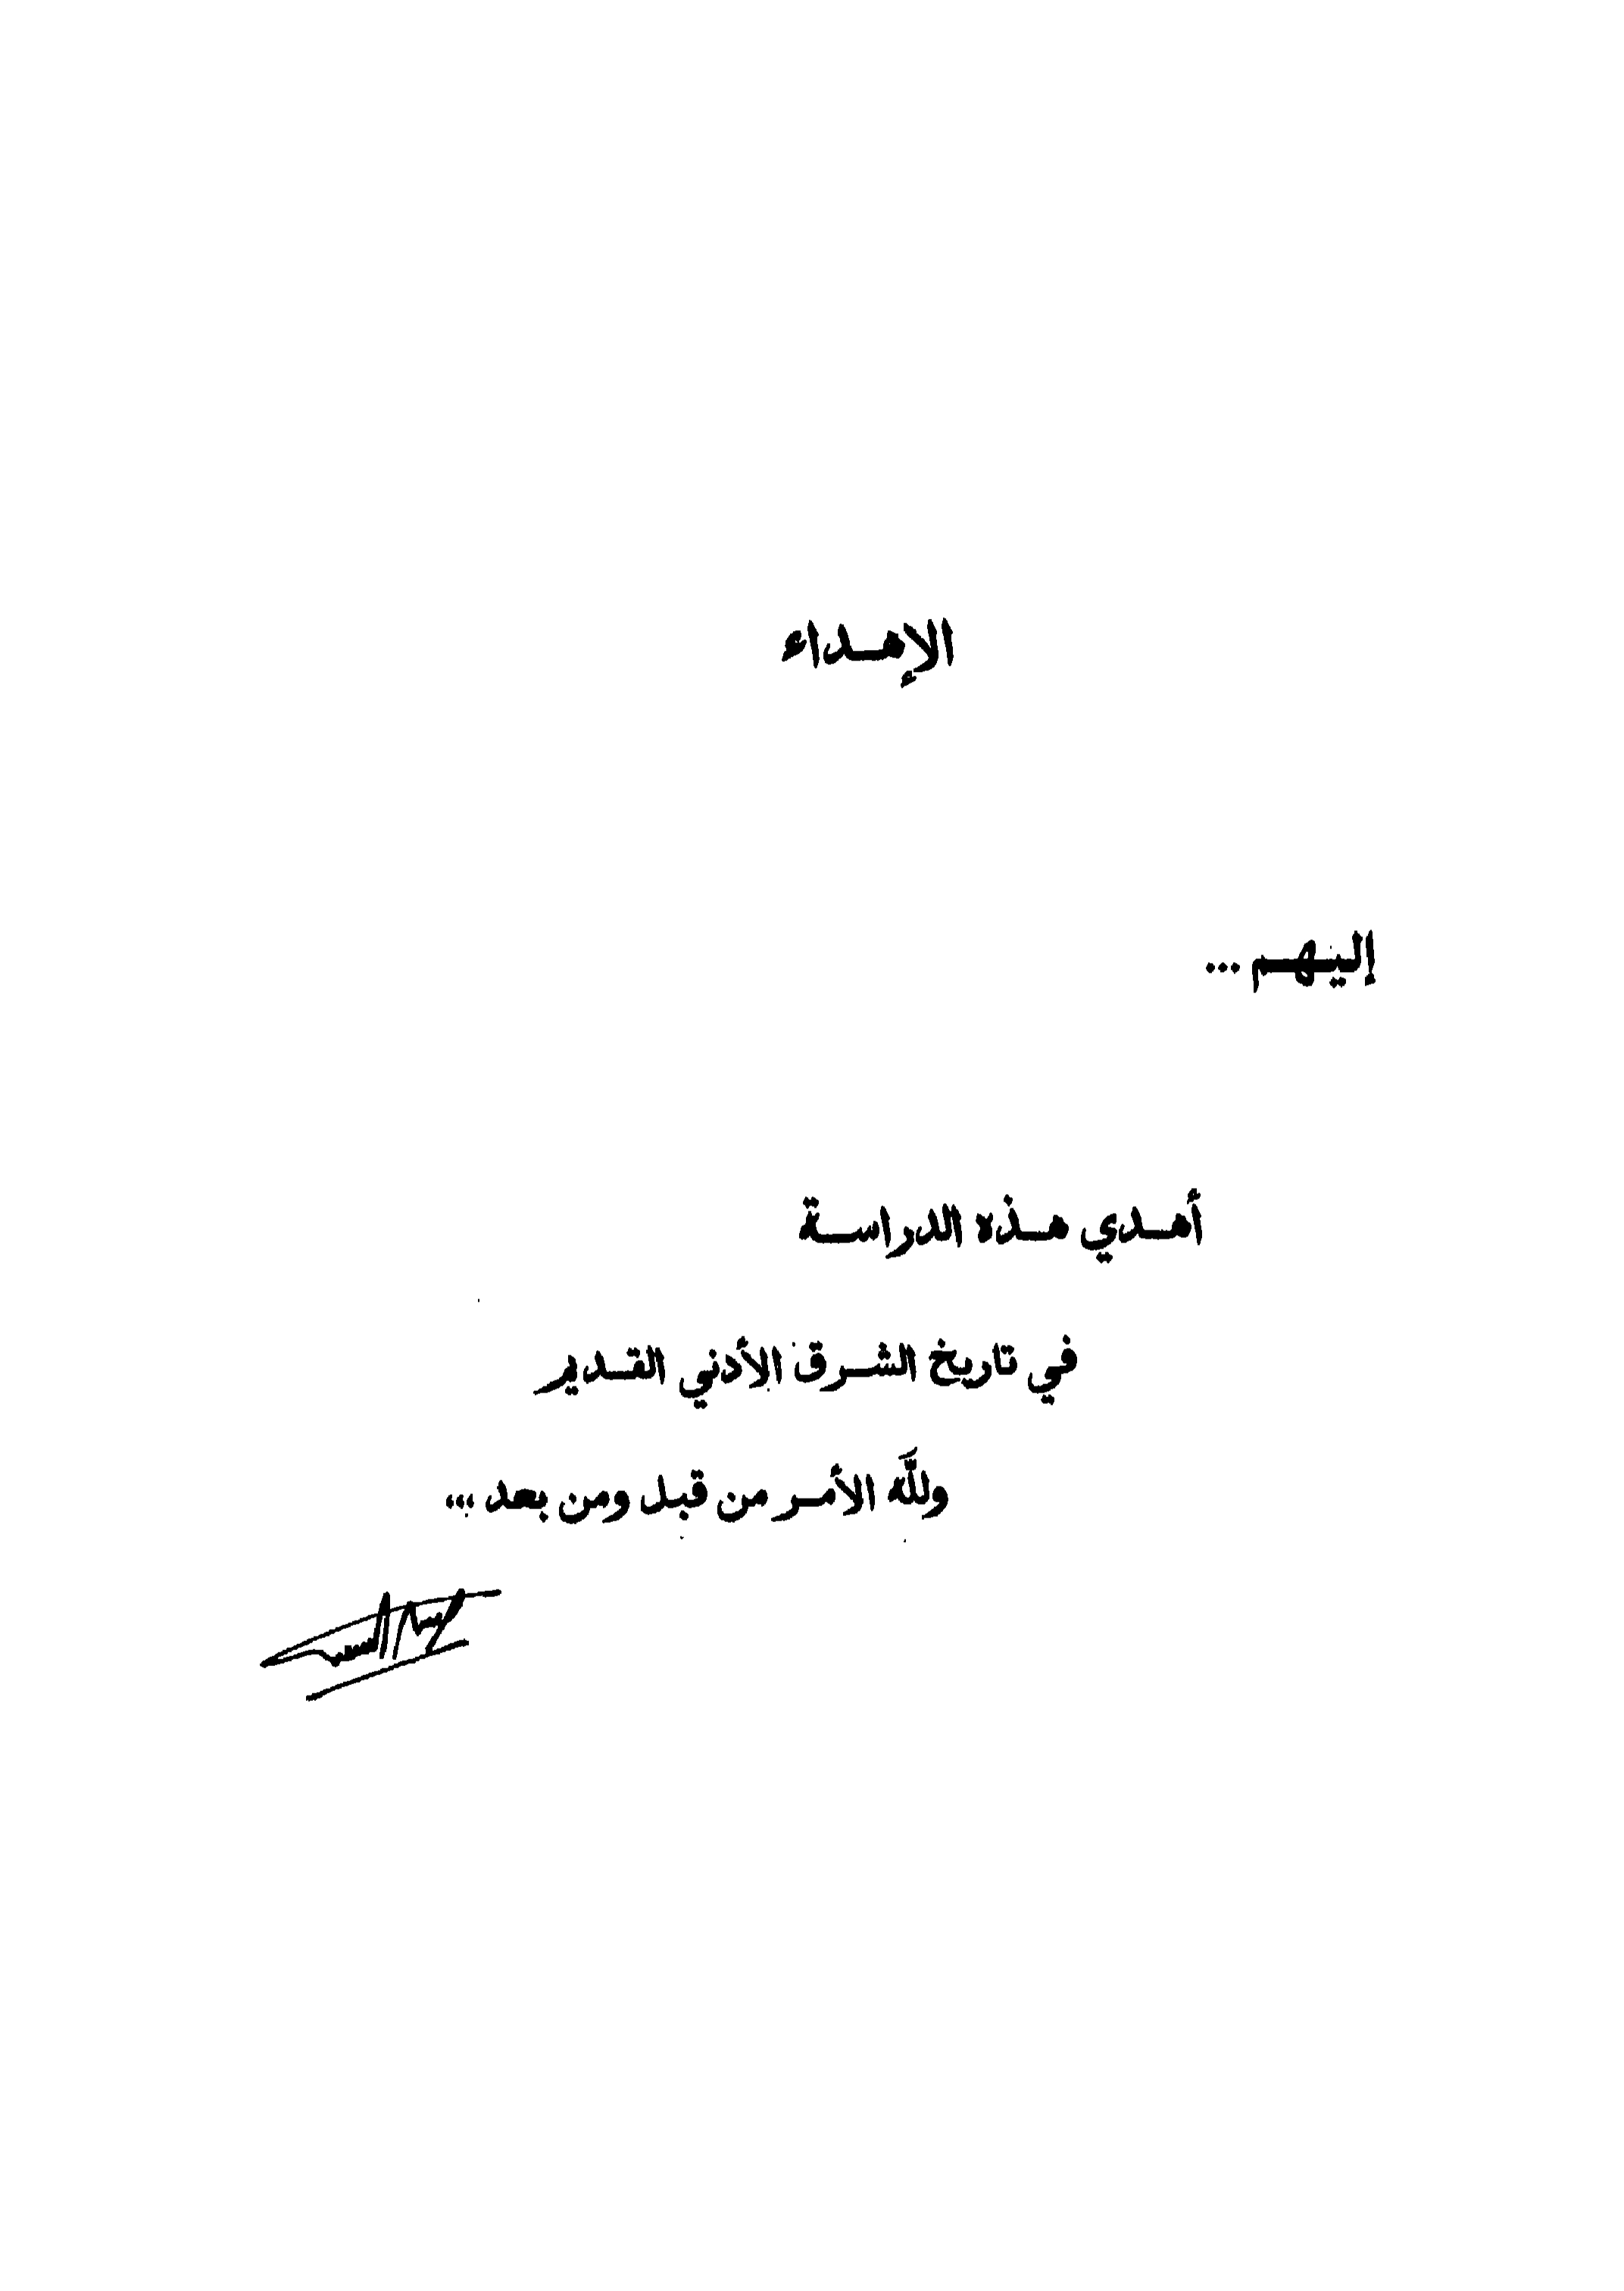 الإهداء
إليهم ...
أهدي هذه الدراسة
في تاريخ الشرق الأدني القديم
ولله الأمر من قبل ومن بعد ...